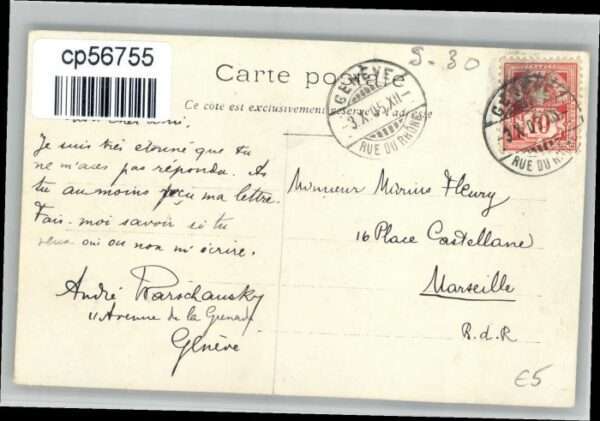 cp56755
5-30
Carte postale
Ce côté est exclusivement réservé à l'adresse
GENÈVE
3.X.05.XII-
RUE DU RHÔNE
GENÈVE
RUE DU RHÔNE
10
Mon cher ami.
Je suis très étonné que tu
ne m'aies pas répondu. As
tu au moins reçu ma lettre.
Fais-moi savoir si tu
veux oui ou non m'écrire.
André Warschawsky
11 Avenue de la Grenade
Genève
Monsieur Marius Fleury
16 Place Castellane
Marseille
B.d.R
€5